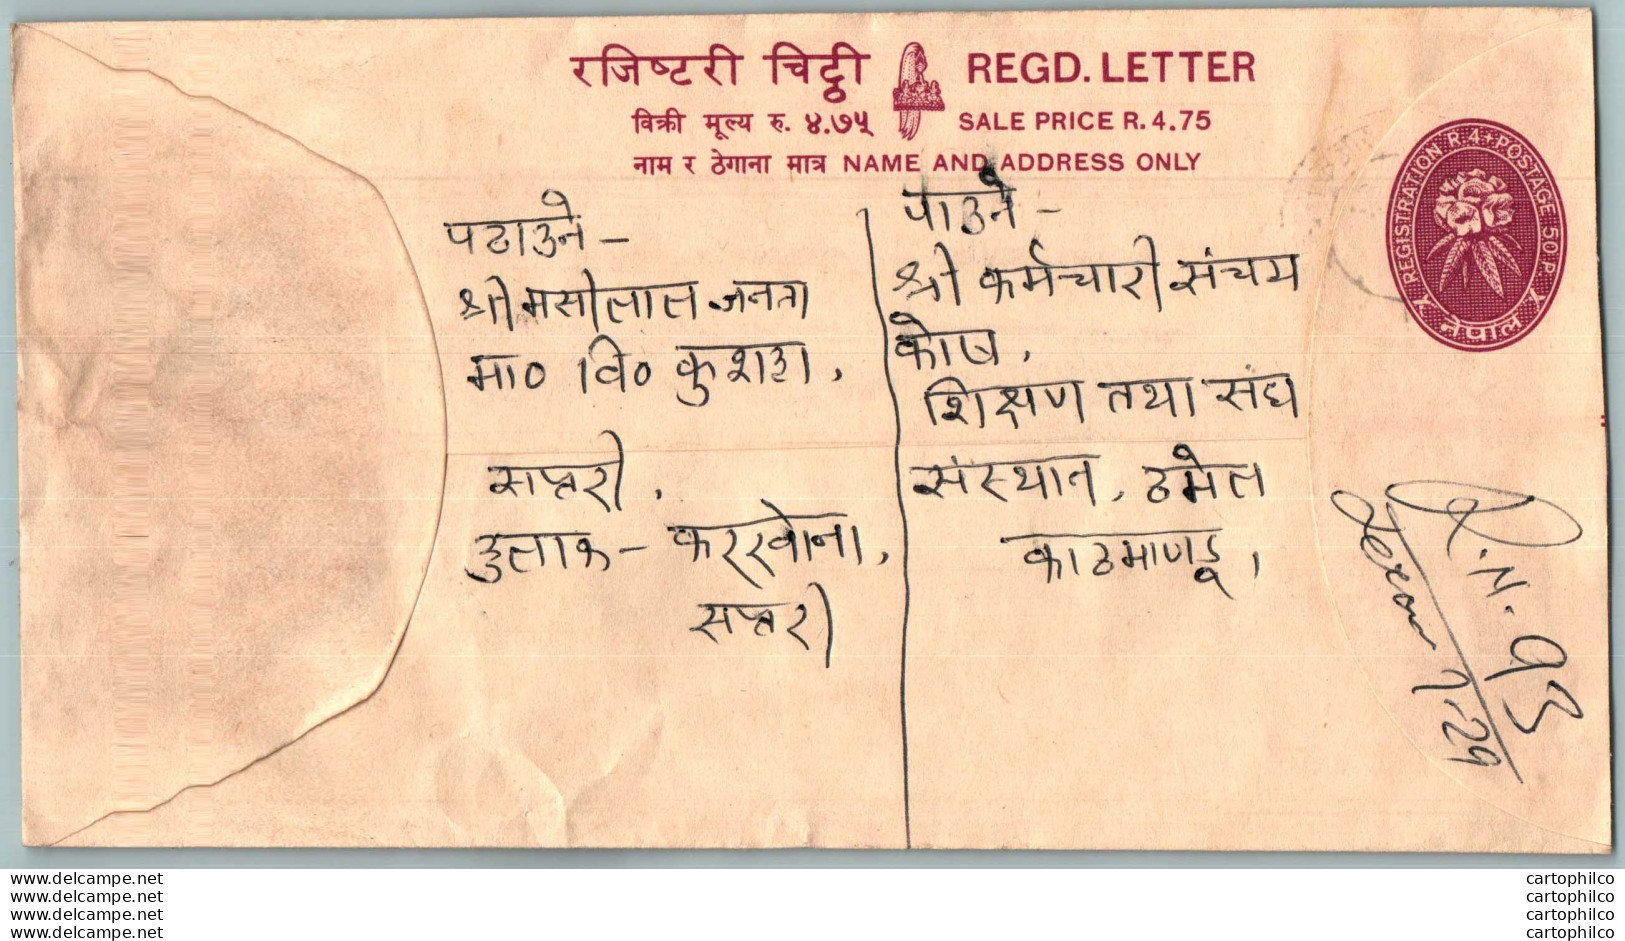 रजिष्टरी चिट्ठी REGD. LETTER
विक्री मूल्य रु. ४.७५ SALE PRICE R. 4.75
नाम र ठेगाना मात्र NAME AND ADDRESS ONLY
REGISTRATION R. 4 + POSTAGE 50 P.
नेपाल
पठाउने -
श्री मसीलाल जनता
मा० वि०
सप्तरी,
सप्तरी
पाउने -
श्री कर्मचारी संचय
कोष,
शिक्षण तथा संघ
संस्थान, ठमेल
काठमाण्डू,
R.N. 93
7.29
www.delcampe.net
www.delcampe.net
www.delcampe.net
www.delcampe.net
cartophilco
cartophilco
cartophilco
cartophilco